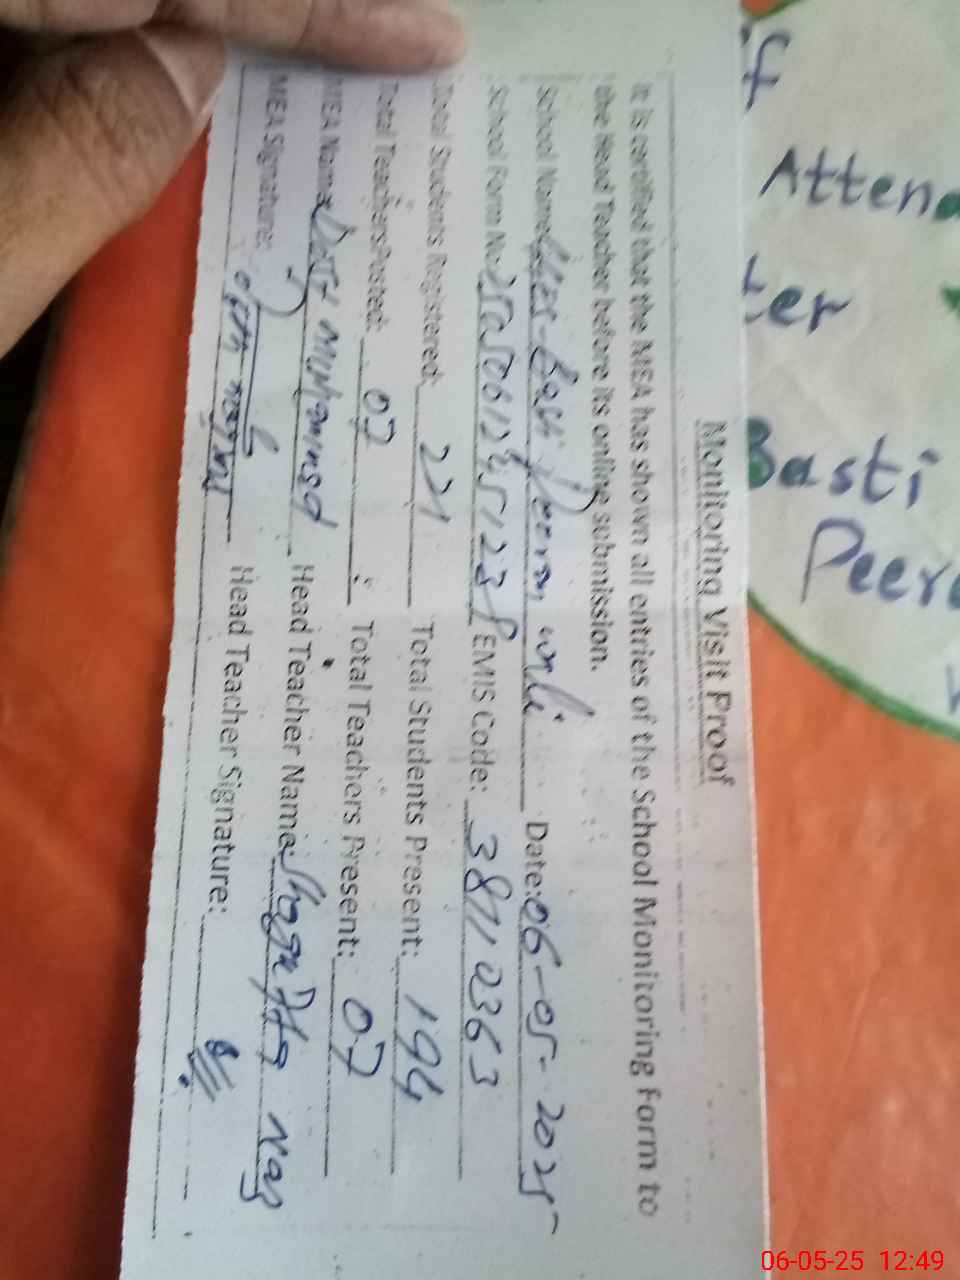 Monitoring Visit Proof
It is certified that the MEA has shown all entries of the School Monitoring Form to
the Head Teacher before its online submission.
School Name: Basti Peeran wali Date: 06-05-2025
School Form No: EMIS Code: 38110363
Total Students Registered: 221 Total Students Present: 194
Total Teachers Posted: 07 Total Teachers Present: 07
MEA Name: Muhammad Head Teacher Name: Shagufta Naz
MEA Signature: Head Teacher Signature:
Atten
ter
Basti
Peer
06-05-25 12:49